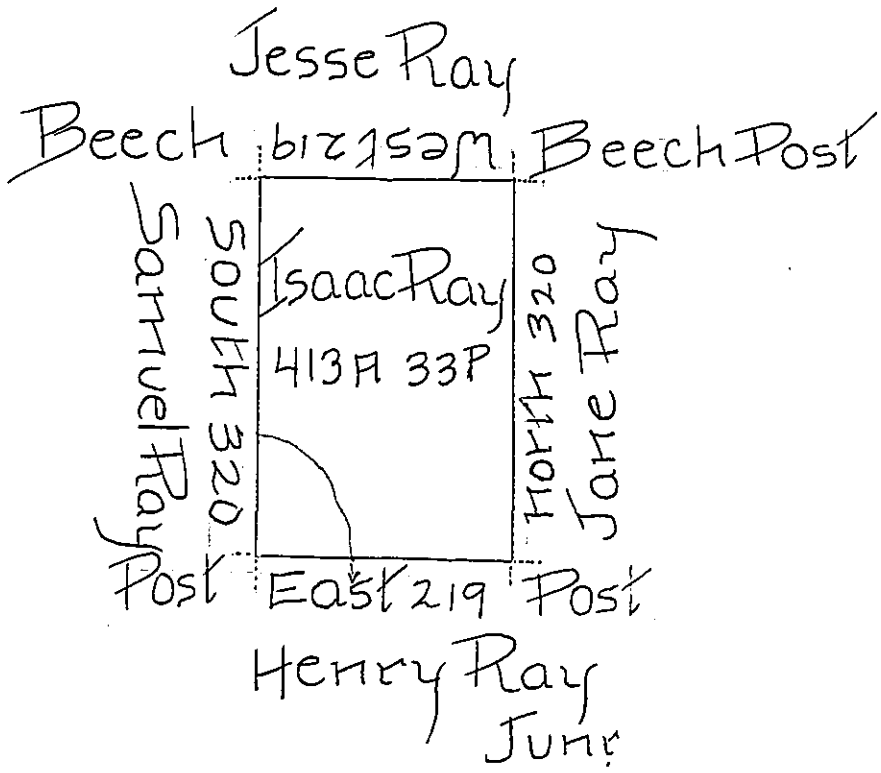 Jesse Ray
Beech West 219 Beech Post
Samuel Ray
South 320
Isaac Ray
413A 33P
North 320
Jane Ray
Post East 219 Post
Henry Ray
Junr